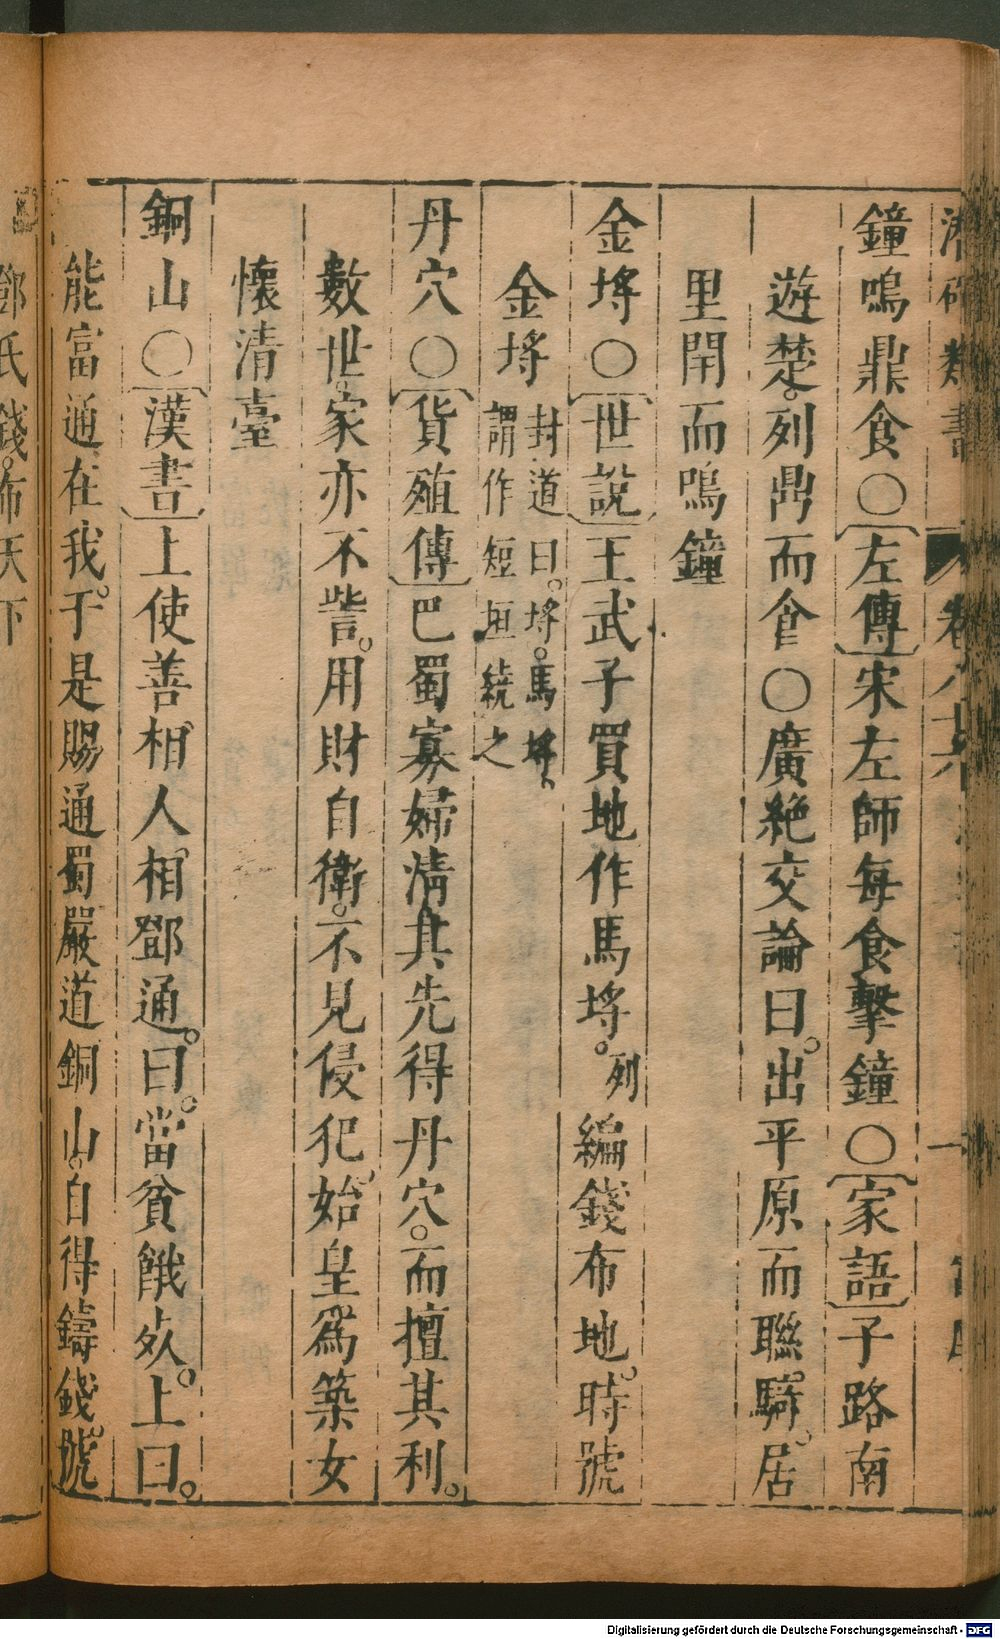 鐘鳴鼎食○左傳宋左師每食擊鐘○家語子路南
遊楚。列鼎而食○廣絶交論曰。出平原而聯騎。居
里閈而鳴鐘
金埒○世說王武子買地作馬埒。列編錢布地。時號
金埒
封道曰。埒。馬埒、
謂作短垣繞之
丹穴○貨殖傳巴蜀寡婦清。其先得丹穴。而擅其利。
數世。家亦不訾。用財自衛。不見侵犯。始皇爲築女
懷清臺
銅山○漢書上使善相人相鄧通。曰。當貧餓死。上曰。
能富通在我。于是賜通蜀嚴道銅山。自得鑄錢。號
鄧氏錢。布天下
Digitalisierung gefördert durch die Deutsche Forschungsgemeinschaft - DFG